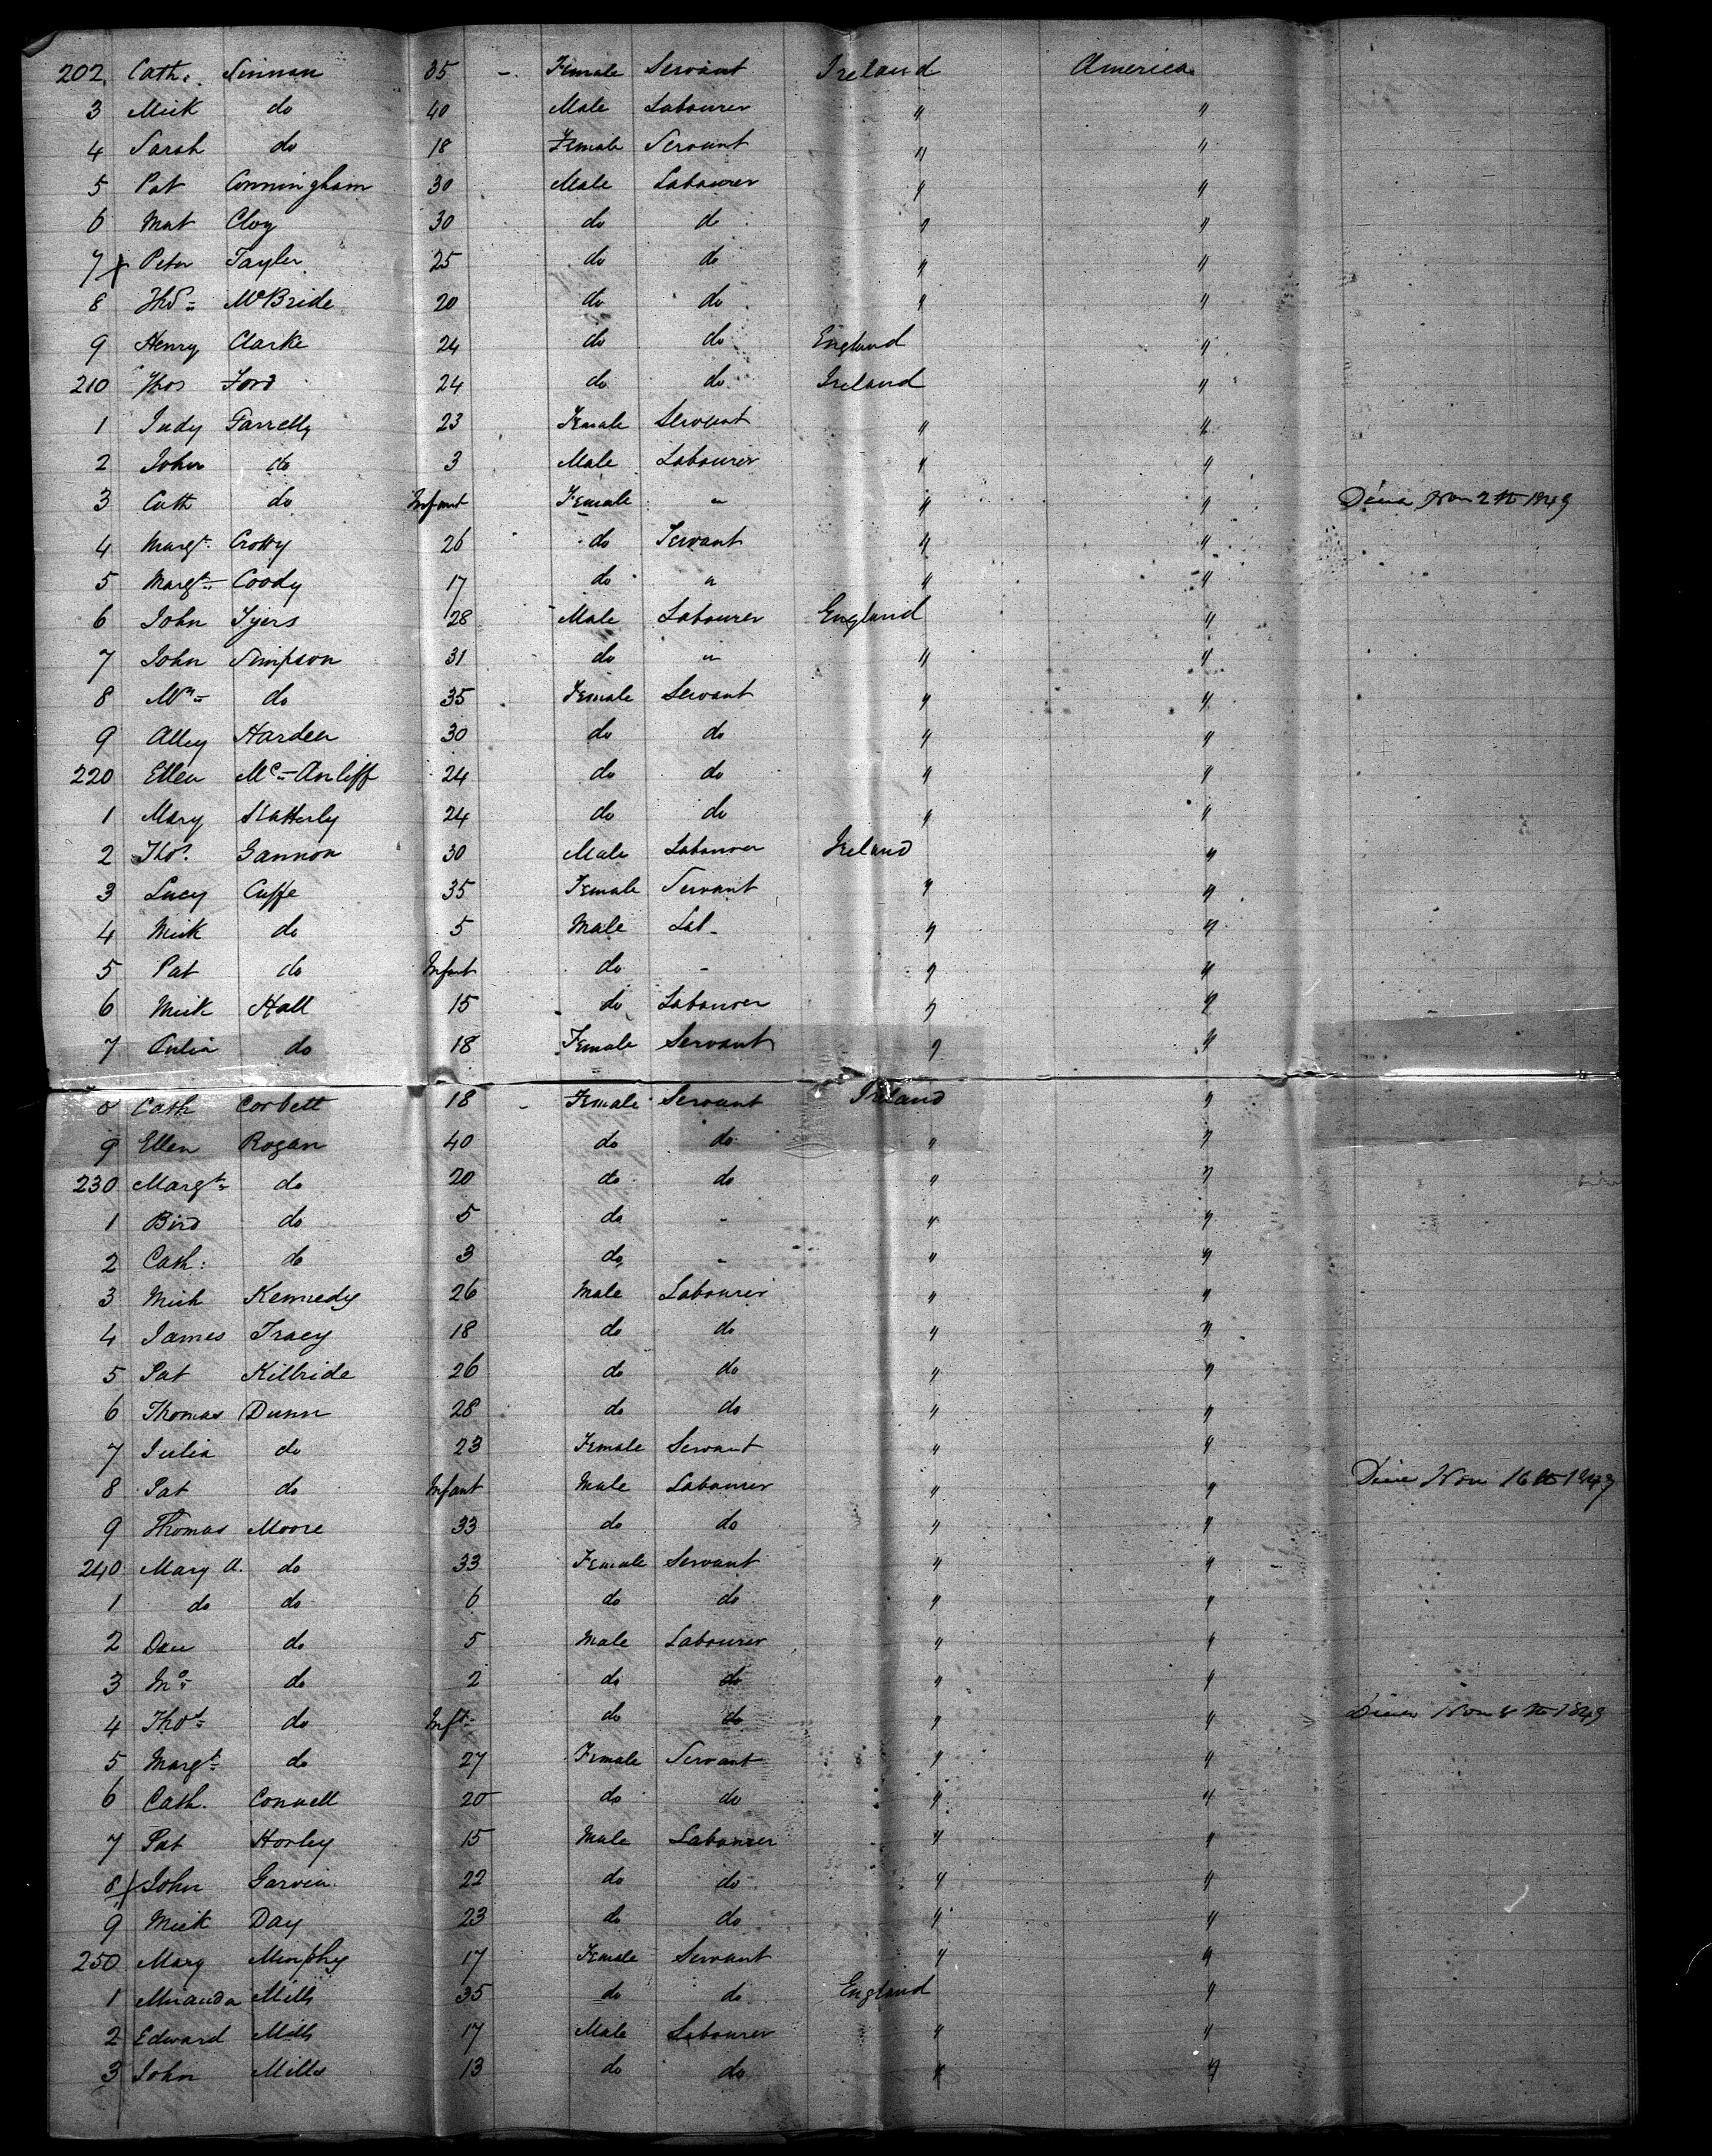 202 Cath: Sinnan 35 - Female Servant Ireland America
3 Mick do 40 Male Labourer " "
4 Sarah do 18 Female Servant " "
5 Pat Conningham 30 Male Labourer " "
6 Mat Cloy 30 do do " "
7 Peter Tayler 25 do do " "
8 Thos McBride 20 do do " "
9 Henry Clarke 24 do do England "
210 Thos Ford 24 do do Ireland "
1 Judy Farrelly 23 Female Servant " "
2 John do 3 Male Labourer " "
3 Cath do Infant Female " " " Nov 2th 1849
4 Margt Crotty 26 do Servant " "
5 Margt Coody 17 do " " "
6 John Tyers 28 Male Labourer England "
7 John Simpson 31 do " " "
8 do 35 Female Servant " "
9 Alley Harden 30 do do " "
220 Ellen Mc-Anliff 24 do do " "
1 Mary Slatterly 24 do do " "
2 Thos. Gannon 30 Male Labourer Ireland "
3 Lucy Cuffe 35 Female Servant " "
4 Mick do 5 Male Lab- " "
5 Pat do Infant do - " "
6 Mick Hall 15 do Labourer " "
7 Julia do 18 Female Servant " "
8 Cath Corbett 18 - Female Servant Ireland "
9 Ellen Rogan 40 do do " "
230 Margt do 20 do do " "
1 Bird do 5 do - " "
2 Cath: do 3 do - " "
3 Mich Kennedy 26 Male Labourer " "
4 James Tracy 18 do do " "
5 Pat Kilbride 26 do do " "
6 Thomas Dunn 28 do do " "
7 Julia do 23 Female Servant " "
8 Pat do Infant Male Labourer " " Nov 16th 1849
9 Thomas Moore 33 do do " "
240 Mary A. do 33 Female Servant " "
1 do do 6 do do " "
2 Dan do 5 Male Labourer " "
3 do 2 do do " "
4 Thos do Inft. do do " " Nov 8th 1849
5 Margt do 27 Female Servant " "
6 Cath. Connell 20 do do " "
7 Pat Horley 15 Male Labourer " "
8 John Garvin 22 do do " "
9 Mick Day 23 do do " "
250 Mary Murphy 17 Female Servant " "
1 Muranda Mills 35 do do England "
2 Edward Mills 17 Male Labourer " "
3 John Mills 13 do do " "